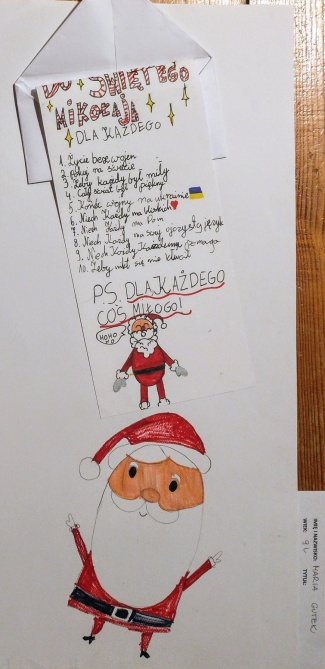 DO ŚWIĘTEGO
MIKOŁAJA
DLA KAŻDEGO
1. Życie bez wojen
2. Pokój na świecie
3. Żeby każdy był miły
4. Cały świat był piękny
5. Koniec wojny na Ukrainie
6. Niech Każdy ma bliskich
7. Niech każdy ma Dom
8. Niech Każdy ma swój ojczysty język
9. Niech Każdy Każdemu Pomaga
10. Żeby nikt się nie kłócił
PS. DLA KAŻDEGO
COŚ MIŁOGO!
HO HO
IMIĘ I NAZWISKO: MARIA GUTEK
WIEK: 9 L. TYTUŁ: